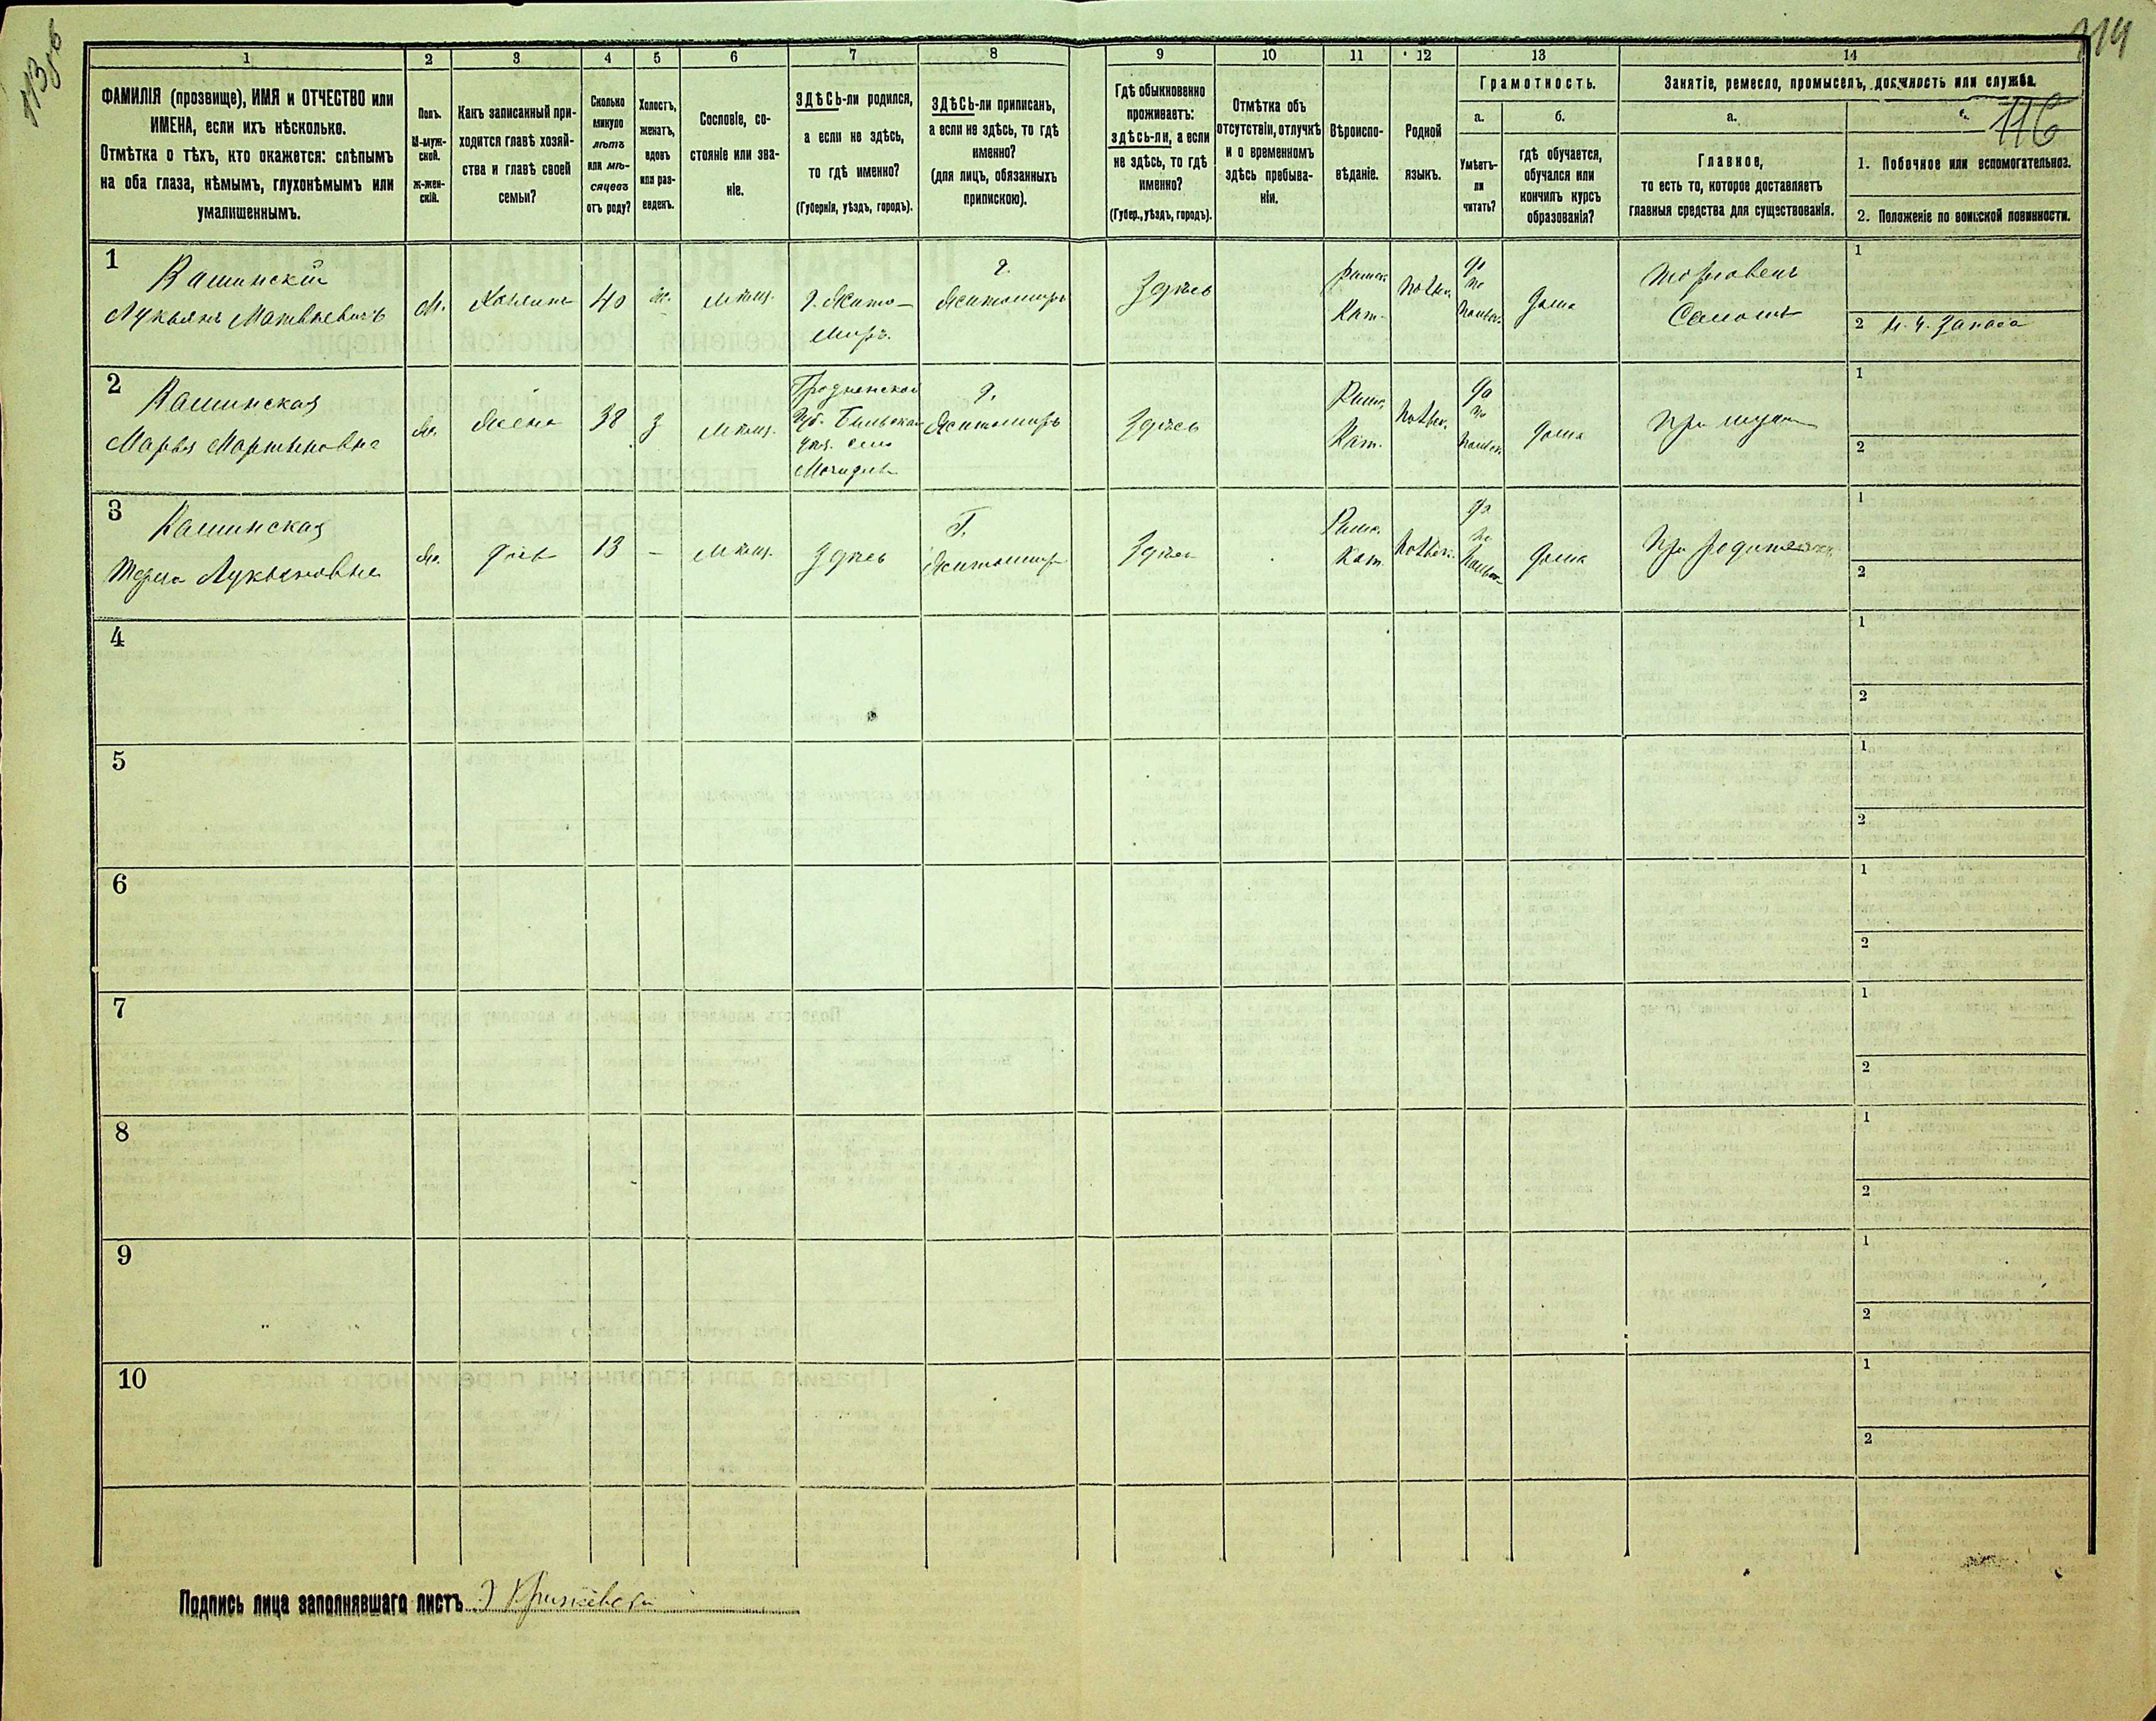 113 об
114
116
1
2
3
4
5
6
7
8
9
10
11
12
13
14
ФАМИЛІЯ (прозвище), ИМЯ и ОТЧЕСТВО или
ИМЕНА, если ихъ нѣсколько.
Отмѣтка о тѣхъ, кто окажется: слѣпымъ
на оба глаза, нѣмымъ, глухонѣмымъ или
умалишеннымъ.
Полъ.
М-муж-
ской.
ж-жен-
скій.
Какъ записанный при-
ходится главѣ хозяй-
ства и главѣ своей
семьи?
Сколько
минуло
лѣтъ
или мѣ-
сяцевъ
отъ роду?
Холостъ,
женатъ,
вдовъ
или раз-
веденъ.
Сословіе, со-
стояніе или зва-
ніе.
ЗДѢСЬ-ли родился,
а если не здѣсь,
то гдѣ именно?
(Губернія, уѣздъ, городъ).
ЗДѢСЬ-ли приписанъ,
а если не здѣсь, то гдѣ
именно?
(для лицъ, обязанныхъ
припискою).
Гдѣ обыкновенно
проживаетъ:
здѣсь-ли, а если
не здѣсь, то гдѣ
именно?
(Губер., уѣздъ, городъ).
Отмѣтка объ
отсутствіи, отлучкѣ
и о временномъ
здѣсь пребыва-
ніи.
Вѣроиспо-
вѣданіе.
Родной
языкъ.
Грамотность.
а.
Умѣетъ-
ли
читать?
б.
гдѣ обучается,
обучался или
кончилъ курсъ
образованія?
Занятіе, ремесло, промыселъ, должность или служба.
а.
Главное,
то есть то, которое доставляетъ
главныя средства для существованія.
1. Побочное или вспомогательное.
2. Положеніе по воинской повинности.
1
Кашинскій
Лукьянъ Матвѣевичъ
М.
Хозяинъ
40
ж.
Мѣщ.
г. Жито-
миръ.
г.
Житомиръ
Здѣсь
Римск.
Кат.
Польск.
да
по
польск.
дома
Торговецъ
Саломъ
1
2 Н. ч. запаса
2
Кашинская
Марья Мартиновна
Ж.
Жена
38
з
Мѣщ.
Гродненской
Губ. Бѣльскаго
уѣз. село
г.
Житомиръ
Здѣсь
Римс.
Кат.
Польск.
да
по
польск.
дома
При мужѣ
1
2
3
Кашинская
Лукьяновна
Ж.
дочь
13
–
Мѣщ.
Здѣсь
Г.
Житомиръ
Здѣсь
Римс.
Кат.
Польск.
да
по
польск.
дома
При родителяхъ
1
2
4
1
2
5
1
2
6
1
2
7
1
2
8
1
2
9
1
2
10
1
2
Подпись лица заполнявшаго листъ